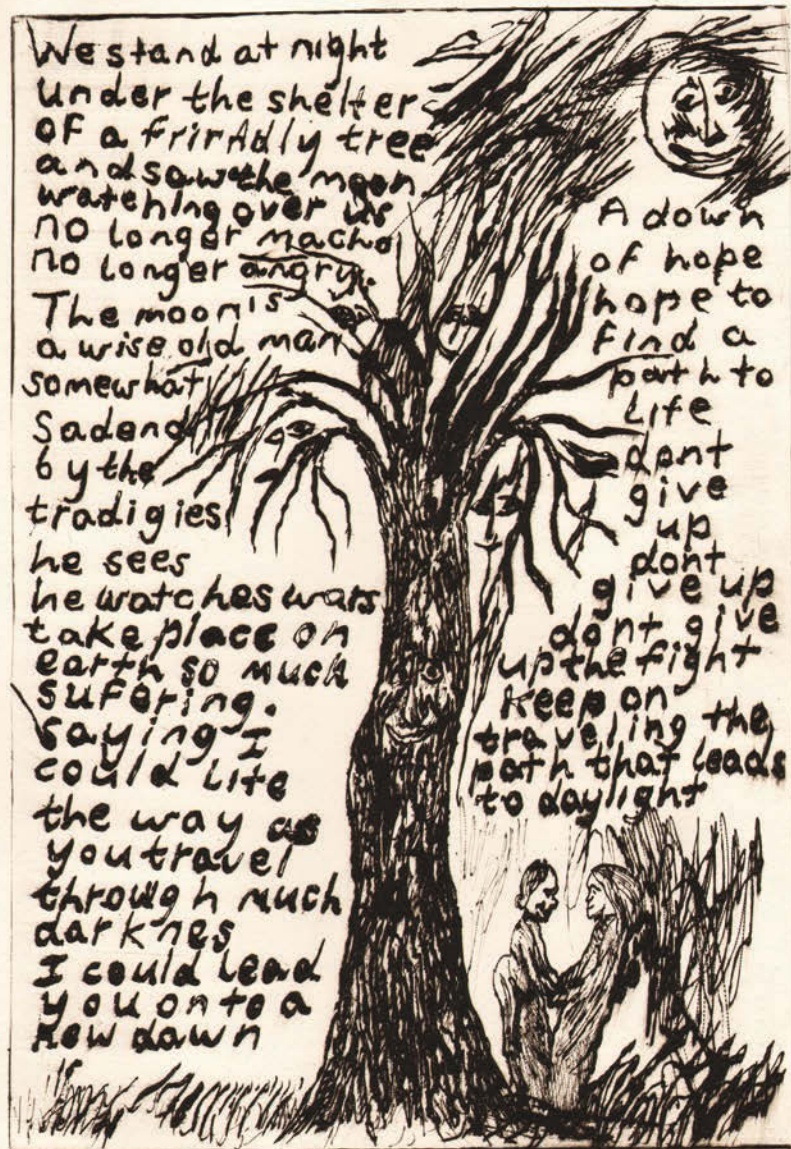 We stand at night
under the shelter
of a frirAdly tree
and saw the moon.
watching over us
no longer macho
no longer angry.
The moon is
a wise old man
somewhat
Sadend
by the
tradigies
he sees
he watches wars
take place on
earth so much
sufering.
saying I
could lite
the way as
you travel
through much
darknes
I could lead
you on to a
new dawn
A down
of hope
hope to
find a
path to
life
dont
give
up
dont
give up
dont give
up the fight
keep on
traveling the
path that leads
to daylight